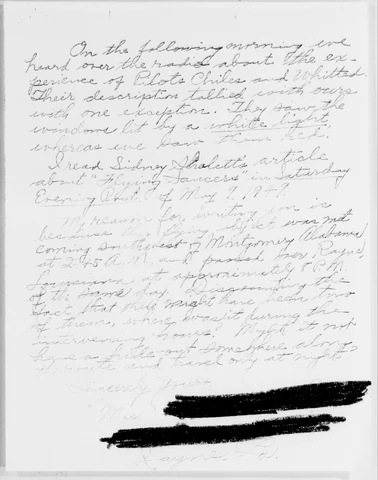 On the following morning we
heard over the radio about the ex-
perience of Pilots Chiles and Whitted.
Their description tallied with ours
with one exception. They saw the
windows lit by a white light,
whereas we saw them red.
I read Sidney Shalett's article
about "Flying Saucers" in Saturday
Evening Post of May 7, 1949.
My reason for writing you is
because this flying object was
coming southwest of Montgomery Alabama
at 2:45 A.M. and passed over Rayne,
Louisiana at approximately 8 P.M.
of the same day. Discounting the
fact that there might have been two
of them, where was it during the
intervening hours. Might it not
have a hide-out somewhere along
route and travel only at night?
Sincerely yours
Mrs
Rayne, La.